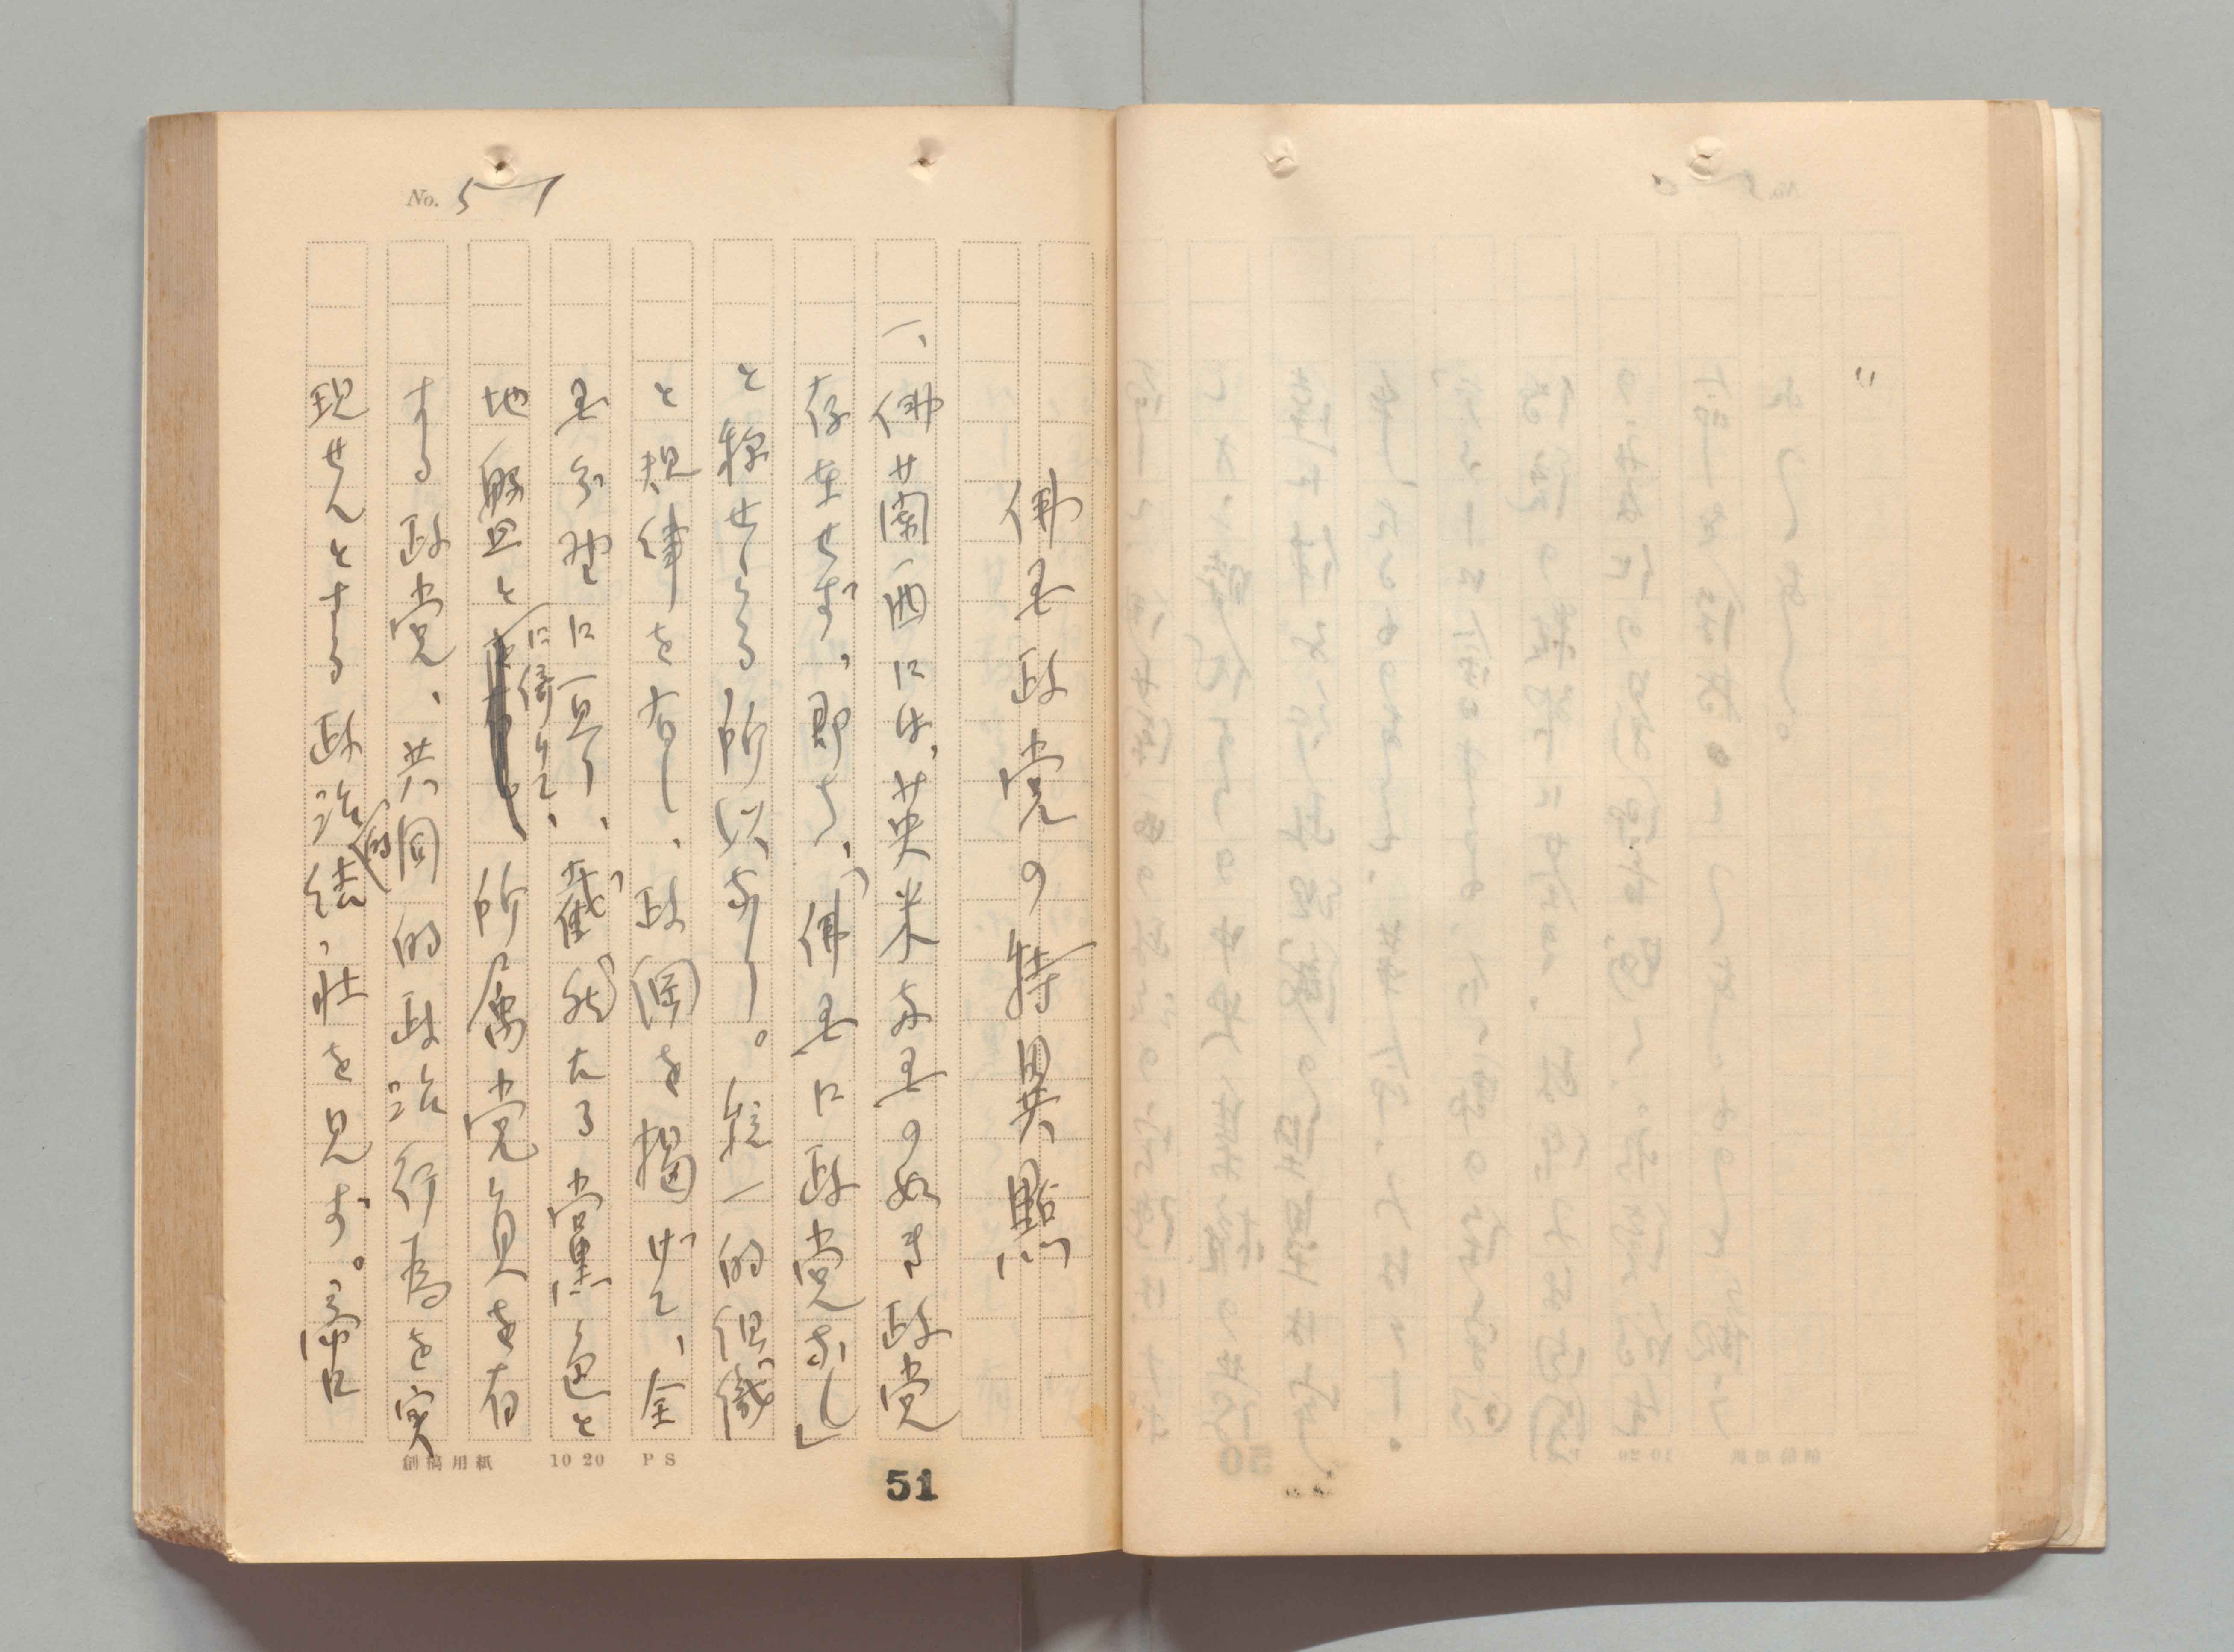 No. 51
佛国政党の特異點
一、佛蘭西には、英米両国の如き政党
存在せず、即ち、「佛国に政党なし」
と称せらるる所以なり。統一的組織
と規律を有し、政綱を掲げて、全
国分野に亘り、截然たる黨色と
地盤とに倚りて、所属党員を有
する政党、共同的政治行為を実
現せんとする政治的結社を見ず。
創稿用紙 10 20 PS
51